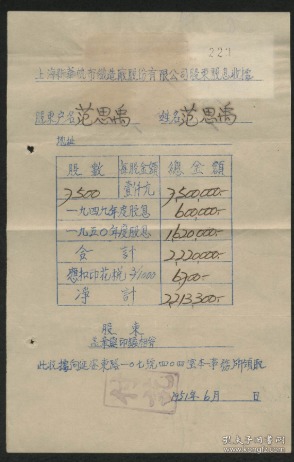 229
上海新華燒市營造廠股份有限公司股東股息收據
股東户名 范思禹 姓名 范思禹
地址
股數 每股金額 總金額
3,500 壹仟元 3,500,000.-
一九四九年度股息 600,000.-
一九五〇年度股息 1,620,000.-
合計 2,220,000.-
應扣印花税 3/1000 6,700.-
淨計 2,213,300.-
股東
此收據向延安東路一〇七號四〇四室本事務所領取
1951年6月 日